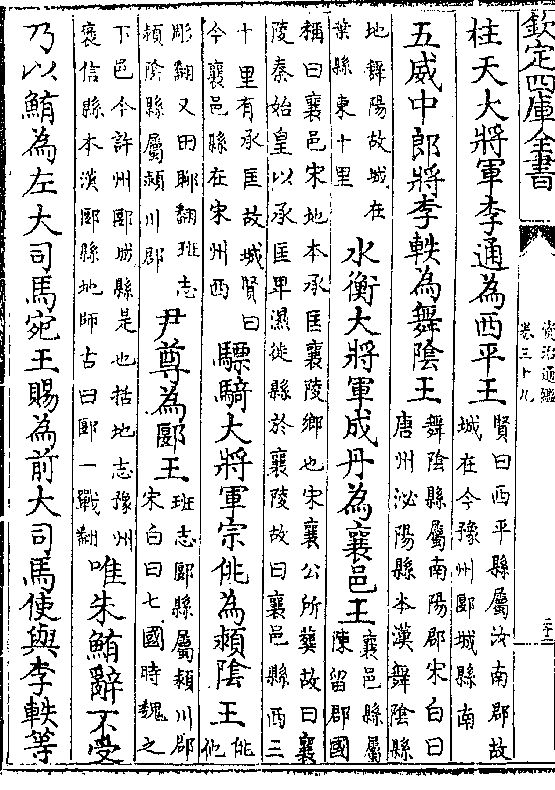 欽定四庫全書
資治通鑑
卷三十九
柱天大將軍李通為西平王
賢曰西平縣屬汝南郡故
城在今豫州郾城縣南
五威中郎將李軼為舞陰王
舞陰縣屬南陽郡宋白曰
唐州泌陽縣本漢舞陰縣
地舞陽故城在
葉縣東十里
水衡大將軍成丹為襄邑王
襄邑縣屬
陳留郡國
稱曰襄邑宋地本承匡襄陵鄉也宋襄公所葬故曰襄
陵秦始皇以承匡卑濕徙縣於襄陵故曰襄邑縣西三
十里有承匡故城賢曰
今襄邑縣在宋州西
驃騎大將軍宗佻為潁陰王
佻
他
彫翻又田聊翻班志
潁陰縣屬潁川郡
尹尊為郾王
班志郾縣屬潁川郡
宋白曰七國時魏之
下邑今許州郾城縣是也括地志豫州
襃信縣本漢郾縣地師古曰郾一戰翻
唯朱鮪辭不受
乃以鮪為左大司馬宛王賜為前大司馬使與李軼等